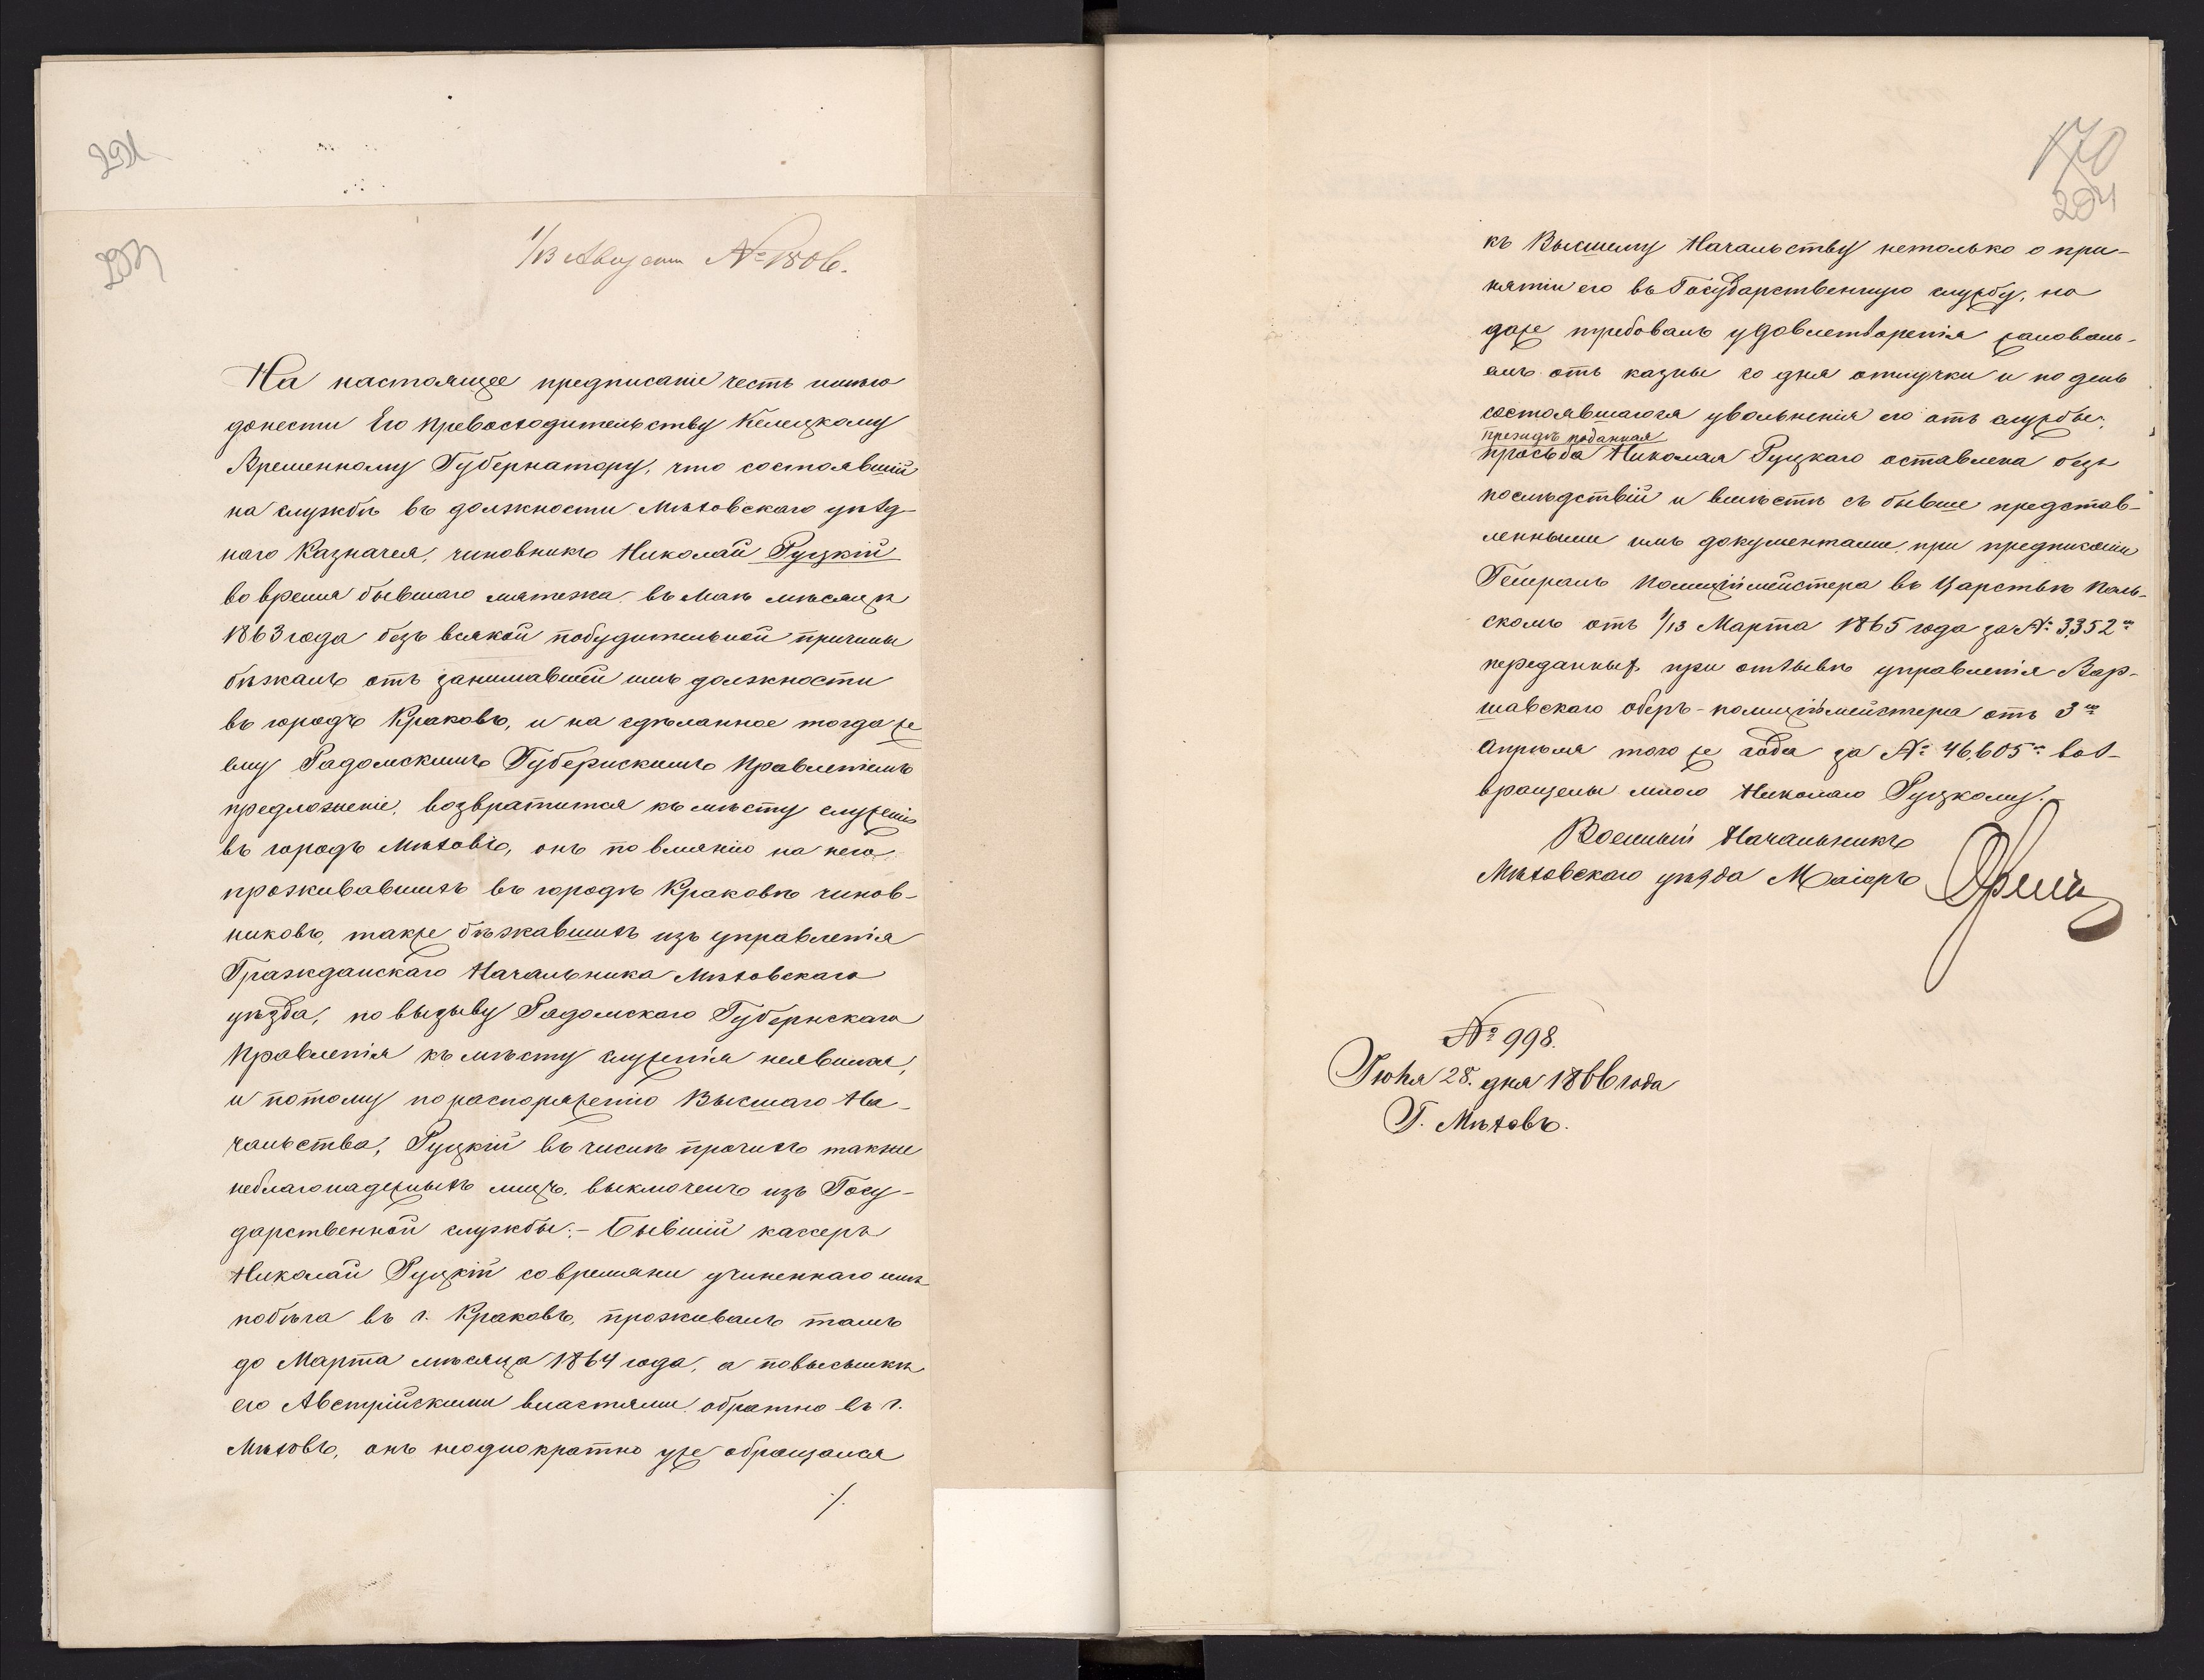 291
203
1/13 Августа № 1806.
На настоящее предписаніе честь имѣю
донести Его Превосходительству Келецкому
Временному Губернатору, что состоявшій
на службѣ въ должности Мѣховскаго уѣзд-
наго Казначея, чиновникъ Николай Руцкій
во время бывшаго мятежа въ Маѣ мѣсяцѣ
1863 года безъ всякой побудительной причины
бѣжалъ отъ занимавшей имъ должности
въ городъ Краковъ, и на сдѣланное тогда же
ему Радомскимъ Губернскимъ Правленіемъ
предложеніе, возвратится къ мѣсту служенія
въ городъ Мѣховъ, онъ по вліянію на него
проживавшихъ въ городѣ Краковѣ чинов-
никовъ, также бѣжавшихъ изъ управленія
Гражданскаго Начальника Мѣховскаго
уѣзда, по вызыву Радомскаго Губернскаго
Правленія къ мѣсту служенія неявился,
и потому по распоряженію Высшаго На-
чальства, Руцкій въ числѣ прочихъ также
неблагонадежныхъ лицъ, выключенъ изъ Госу-
дарственной службы.- Бывшій кассеръ
Николай Руцкій со времяни учиненнаго имъ
побѣга въ г. Краковъ, проживалъ тамъ
до Марта мѣсяца 1864 года, а повысылкѣ
его Австрійскими властями обратно въ г.
Мѣховъ, онъ неоднократно уже обращался
./.
170
204
къ Высшему Начальству нетолько о при-
нятіи его въ Государственную службу, но
даже требовалъ удовлетворенія жаловань-
емъ отъ казны со дня отлучки и по день
состоявшагося увольненія его отъ службы;
прежде поданная
просьба Николая Руцкаго оставлена безъ
послѣдствій и вмѣстѣ съ бывше представ-
ленными имъ документами при предписаніи
Генералъ Полиціймейстера въ Царствѣ Поль-
скомъ отъ 1/13 Марта 1865 года за № 3,352м
переданных при отзывѣ управленія Вар-
шавскаго оберъ-полиціймейстера отъ 3го
Апрѣля того же года за № 46,605м воз-
вращены мною Николаю Руцкому.
Военный Начальникъ
Мѣховскаго уѣзда Маіоръ
№ 998.
Іюня 28. дня 1866 года
Г. Мѣховъ.